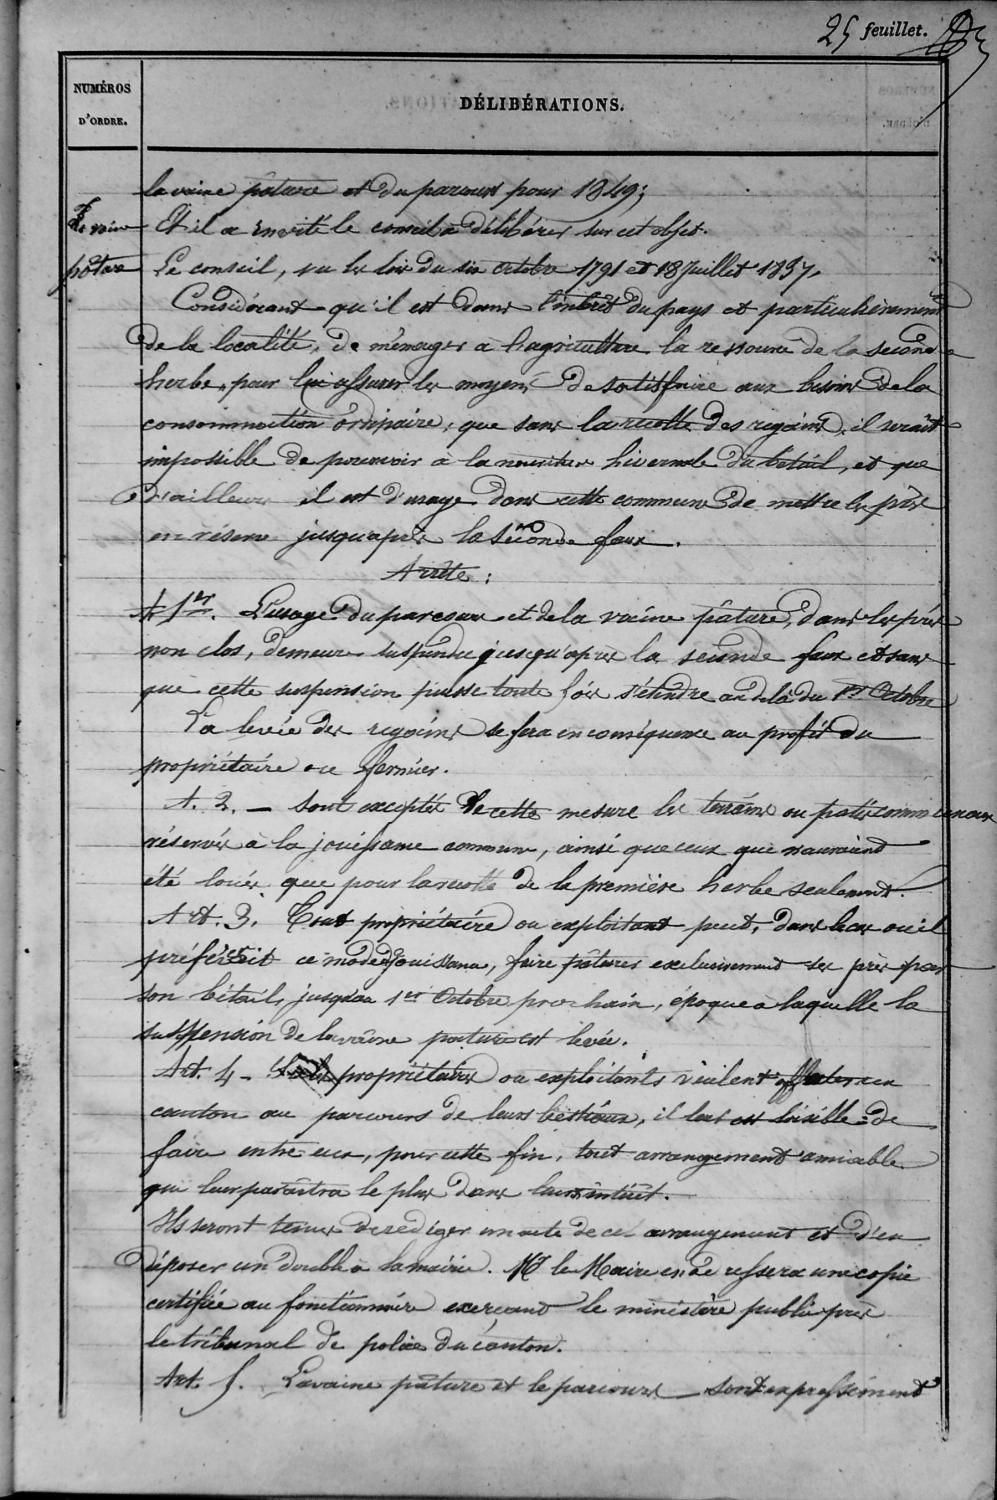 25 feuillet.
NUMÉROS
D'ORDRE.
DÉLIBÉRATIONS.
la vaine pâture et du parcours pour 1849;
Et il a invité le conseil à délibérer sur cet objet.
La vaine
pâture
Le conseil, vu les lois du six octobre 1791 et 18 Juillet 1837,
Considérant qu'il est dans l'intérêt du pays et particulièrement
de la localité, de ménager à l'agriculture la ressource de la seconde
herbe, pour lui assurer les moyens de satisfaire aux besoins de la
consommation ordinaire; que sans la récolte des regains, il serait
impossible de pourvoir à la nourriture hivernale du bétail, et que
d'ailleurs il est d'usage dans cette commune de mettre les prés
en réserve jusqu'après la seconde faux.
Arrête:
A 1er. L'usage du parcours et de la vaine pâture, dans les prés
non clos, demeure suspendu jusqu'après la seconde faux et sans
que cette suspension puisse toute fois s'étendre au delà du 1er Octobre
La levée des regains se fera en conséquence au profit du
propriétaire ou fermier.
A. 2. — Sont exceptés de cette mesure les terrains ou patis communaux
réservés à la jouissance commune, ainsi que ceux qui n'auraient
été loués que pour la récolte de la première herbe seulement.
Art. 3. Tout propriétaire ou exploitant peut, dans le cas où il
préférerait ce mode de jouissance, faire pâturer exclusivement ses prés par
son bétail, jusqu'au 1er Octobre prochain, époque a laquelle la
suspension de la vaine pature est levée.
Art. 4 - Si les propriétaires ou exploitants veulent affecter un
canton au parcours de leurs bestiaux, il leur est loisible de
faire entre eux, pour cette fin, tout arrangement amiable
qui leur paraîtra le plus dans leurs intérêt.
Ils seront tenus de rédiger un acte de cet arrangement et d'en
déposer un double à la mairie. Mr le Maire en adressera une copie
certifiée au fonctionnaire exerçant le ministère public près
le tribunal de police du canton.
Art. 5. La vaine pâture et le parcours sont expressément